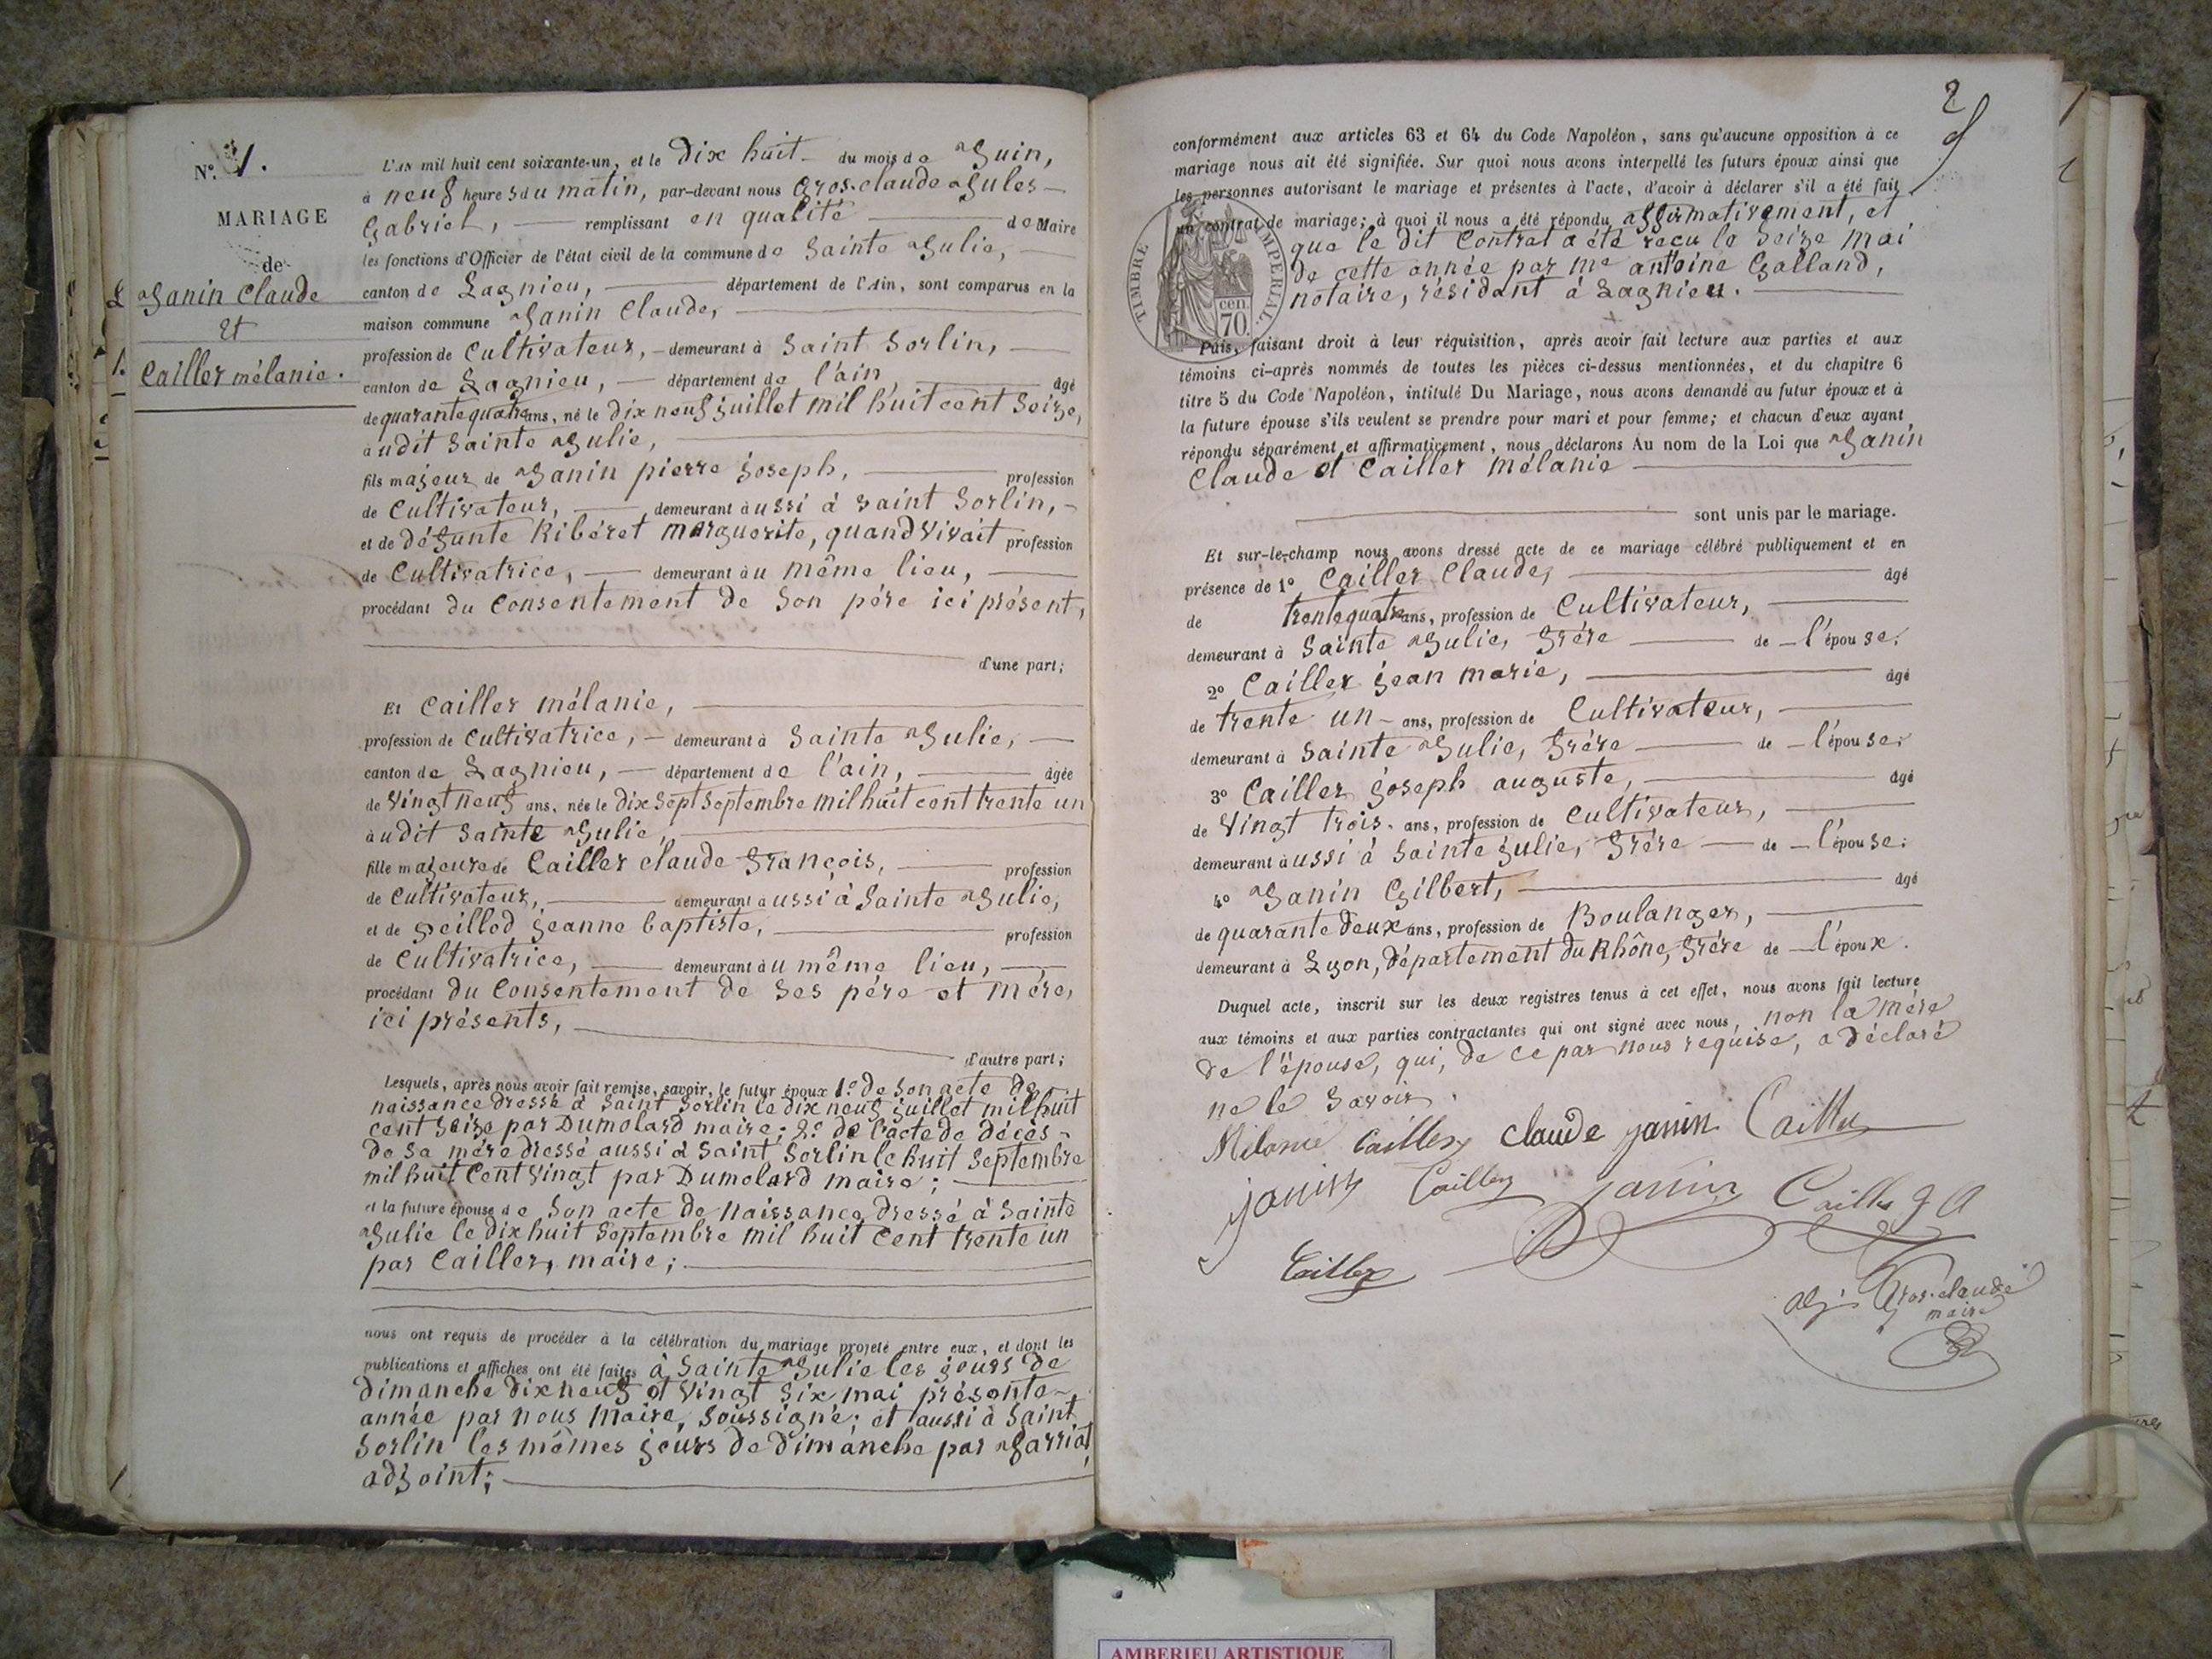 N.º 1.
MARIAGE
de
Janin Claude
Et
Cailler mélanie.
L'AN mil huit cent soixante-un, et le Dix huit du mois de Juin,
à neuf heures du matin, par-devant nous Gros-claude Jules
Gabriel, remplissant en qualité de Maire
les fonctions d'Officier de l'état civil de la commune de Sainte Julie,
canton de Lagnieu, département de l'Ain, sont comparus en la
maison commune Janin Claude,
profession de Cultivateur, demeurant à Saint Sorlin,
canton de Lagnieu, département de l'ain, âgé
de quarante quatre ans, né le Dix neuf juillet mil huit cent Seize,
audit Sainte Julie,
fils majeur de Janin pierre joseph, profession
de Cultivateur, demeurant aussi à Saint Sorlin,
et de défunte Ribéret marguerite, quand vivait profession
de Cultivatrice, demeurant au même lieu,
procédant du Consentement de Son père ici présent,
d'une part;
Et Cailler mélanie,
profession de Cultivatrice, demeurant à Sainte Julie,
canton de Lagnieu, département de l'ain, âgée
de Vingt neuf ans, née le Dix Sept Septembre mil huit cent trente un
audit Sainte Julie,
fille majeure de Cailler claude françois, profession
de Cultivateur, demeurant aussi à Sainte Julie,
et de peillod jeanne baptiste, profession
de Cultivatrice, demeurant au même lieu,
procédant du Consentement de Ses père et mère,
ici présents,
d'autre part;
Lesquels, après nous avoir fait remise, savoir, le futur époux 1.º de Son acte de
naissance dressé à Saint Sorlin le dix neuf juillet mil huit
cent Seize par Dumolard maire; 2.º de l'acte de décès
de Sa mère dressé aussi à Saint Sorlin le huit Septembre
mil huit Cent Vingt par Dumolard maire;
et la future épouse de Son acte de naissance dressé à Sainte
Julie le dix huit Septembre mil huit Cent trente un
par Cailler, maire;
nous ont requis de procéder à la célébration du mariage projeté entre eux, et dont les
publications et affiches ont été faites à Sainte Julie les jours de
Dimanche dix neuf et Vingt Six mai présente
année par nous Maire, Soussigné; et aussi à Saint
Sorlin les mêmes jours de dimanche par Jarriot,
adjoint;
2
conformément aux articles 63 et 64 du Code Napoléon, sans qu'aucune opposition à ce
mariage nous ait été signifiée. Sur quoi nous avons interpellé les futurs époux ainsi que
les personnes autorisant le mariage et présentes à l'acte, d'avoir à déclarer s'il a été fait
un contrat de mariage; à quoi il nous a été répondu affirmativement, et
que le dit Contrat a été reçu le Seize Mai
de cette année par Me antoine Galland,
notaire, résidant à Lagnieu.
TIMBRE IMPERIAL.
cen.
70.
Puis, faisant droit à leur réquisition, après avoir fait lecture aux parties et aux
témoins ci-après nommés de toutes les pièces ci-dessus mentionnées, et du chapitre 6
titre 5 du Code Napoléon, intitulé Du Mariage, nous avons demandé au futur époux et à
la future épouse s'ils veulent se prendre pour mari et pour femme; et chacun d'eux ayant
répondu séparément et affirmativement, nous déclarons Au nom de la Loi que Janin
Claude et Cailler Mélanie
sont unis par le mariage.
Et sur-le-champ nous avons dressé acte de ce mariage célébré publiquement et en
présence de 1º Cailler Claude, âgé
de trente quatre ans, profession de Cultivateur,
demeurant à Sainte Julie, frère de l'épouse;
2º Cailler jean marie, âgé
de trente un ans, profession de Cultivateur,
demeurant à Sainte Julie, frère de l'épouse;
3º Cailler joseph auguste, âgé
de Vingt trois ans, profession de Cultivateur,
demeurant aussi à Sainte julie, frère de l'épouse;
4º Janin Gilbert, âgé
de quarante Deux ans, profession de Boulanger,
demeurant à Lyon, département du Rhône, frère de l'époux.
Duquel acte, inscrit sur les deux registres tenus à cet effet, nous avons fait lecture
aux témoins et aux parties contractantes qui ont signé avec nous, non la mère
de l'épouse, qui, de ce par nous requise, a déclaré
ne le Savoir.
Mélanie Cailler claude janin Cailler
janin Cailler janin Cailler J A
Cailler
Gros-claude
maire
AMBERIEU ARTISTIQUE